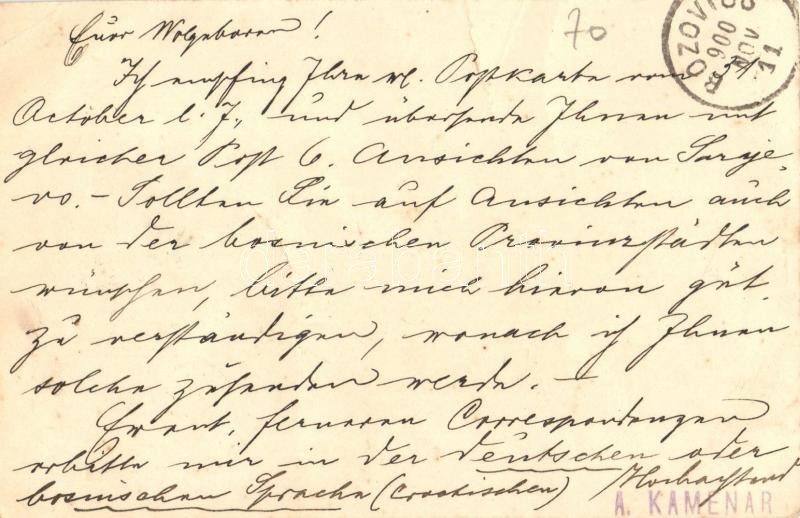 Euer Wolgeboren!
70
BOZOVICS
900 NOV 11
Ich empfing Ihre w. Postkarte vom 31.
October l. J., und übersende Ihnen mit
gleicher Post 6. Ansichten von Saraje-
vo. – Sollten Sie auf Ansichten auch
von der bosnischen Provinzstädten
wünschen, bitte mich hievon güt.
zu verständigen, wonach ich Ihnen
solche zusenden werde. –
Event. ferneren Correspondenzen
erbitte mir in der deutschen oder
bosnischen Sprache (Croatischen) Hochachtend
A. KAMENAR